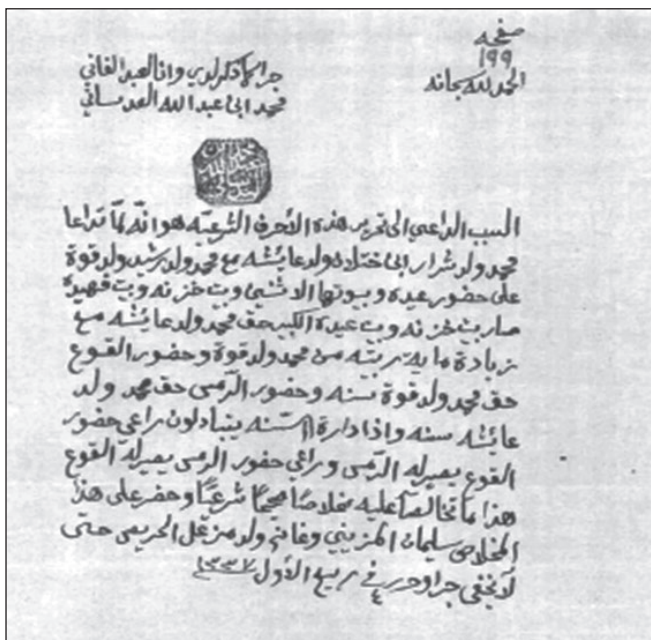 صفحه
١٩٩
الحمد لله سبحانه
جرا كما ذكر لدي وانا العبد الفاني
محمد ابن عبد الله العدساني
السبب الداعي الى تحرير هذه الأحرف الشرعيه هو انه لمّا تداعا
محمد ولد شرار ابى ختلان ولد عايشه مع محمد ولد رشيد ولد قوة
على حضور عبده وبيوتها الاثني وبيت خزنه وبيت فهيده
صار بيت خزنه وبيت عبدة الكبير حق محمد ولد عايشه مع
زيادة ماية ربيّه من محمد ولد قوة وحضور القوع
حق محمد ولد قوة سنه وحضور الدّمى حق محمد ولد
عايشه سنه واذا دارة السّنه يتبادلون راعي حضور
القوع يصير له الدّمى وراعي حضور الدّمى يصير له القوع
هذا ما تخالصا عليه خلاصًا صحيحًا شرعيًا وحضر على هذا
الخلاص سليمان المزيني وغانم ولد مزعل الحريص حتى
لا يخفى جرا وحرر في ٤ ربيع الأول ١٣٣٧